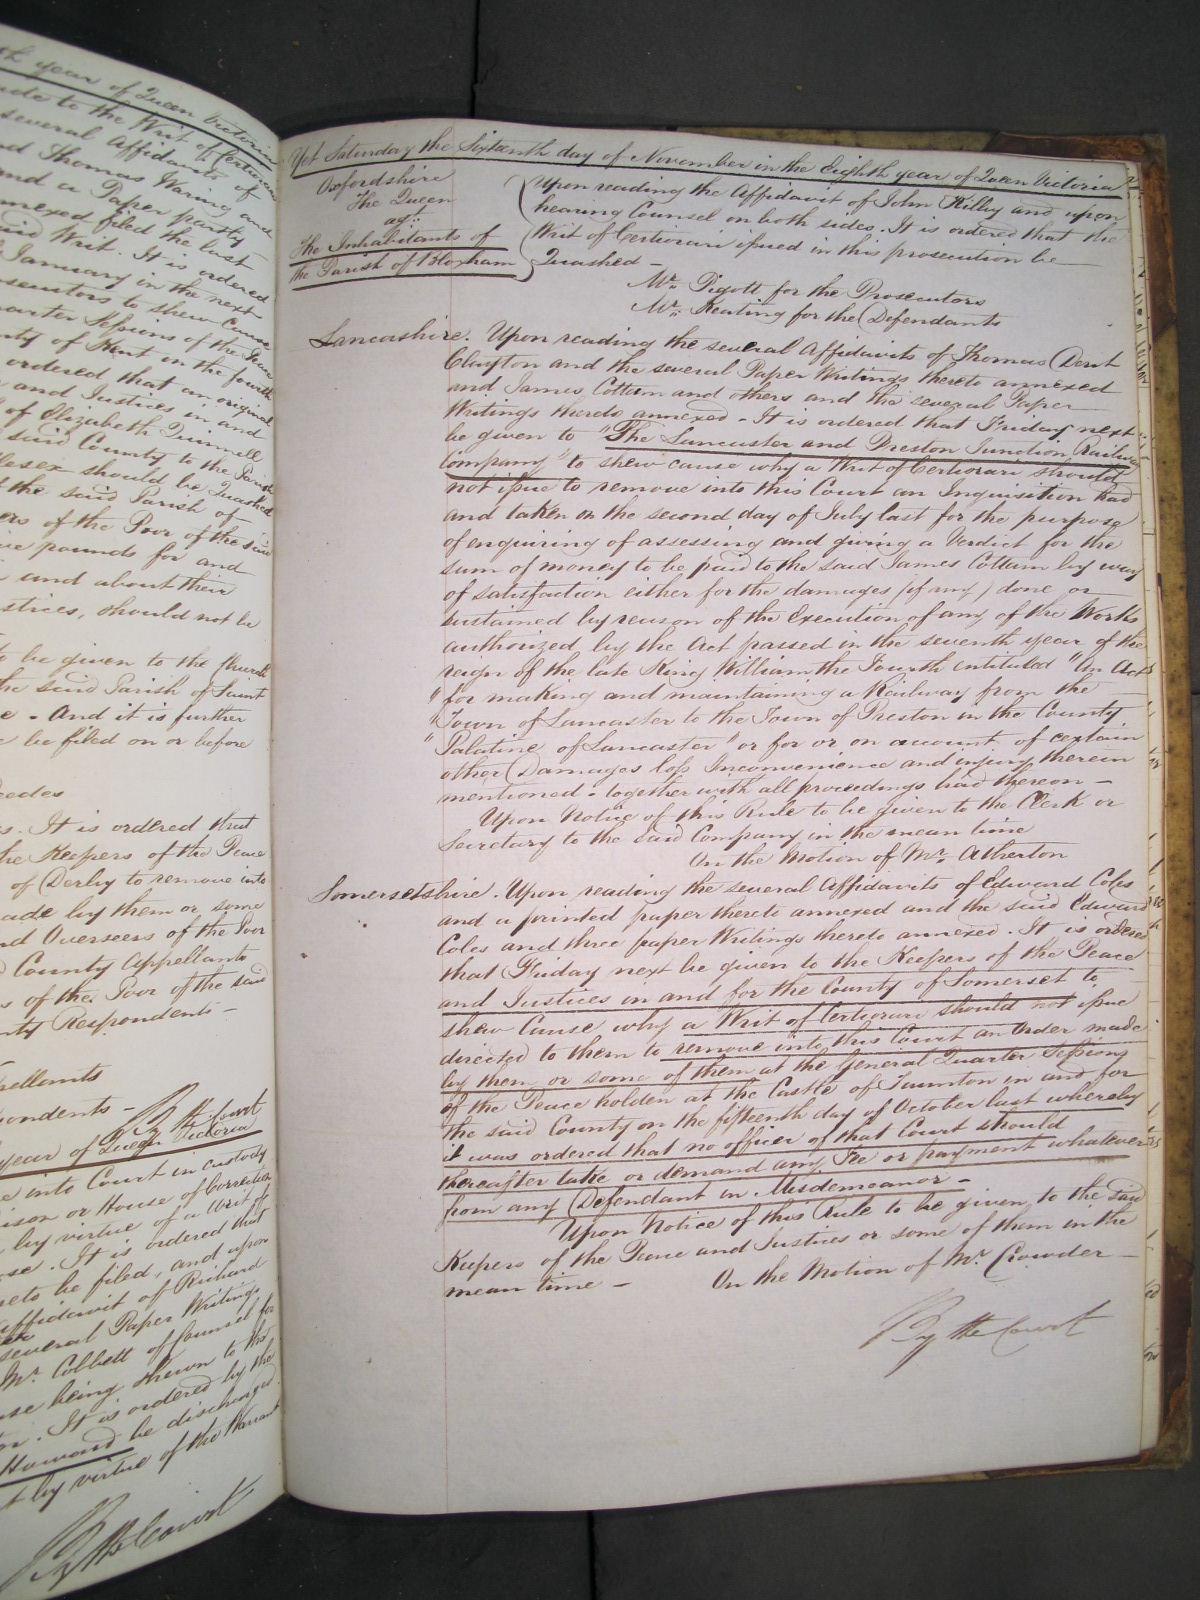 th year of Queen Victoria
made to the Writ of Certiorari
several Affidavits of
and Thomas Waring and
and a Paper partly
annexed filed the last
said Writ. It is ordered
January in the next
Prosecutors to shew Cause
Quarter Sessions of the Peace
County of Kent on the fourth
ordered that an original
and Justices in and
of Elizabeth Dunnell
said County to the Parish
should be Quashed
the said Parish of
Overseers of the Poor of the said
five pounds for and
in and about their
Justices, should not be
to be given to the
the said Parish of Saint
- And it is further
be filed on or before
It is ordered that
the Keepers of the Peace
of Derby to remove into
made by them or some
and Overseers of the Poor
County Appellants
of the Poor of the said
County Respondents -
Appellants
Respondents -
By the Court
year of Queen Victoria
into Court in custody
Prison or House of Correction
by virtue of a Writ of
It is ordered that
hereto be filed, and upon
Affidavit of Richard
several Paper Writings
Mr. Cobbett of Counsel for
being shewn to the
It is ordered by the
Howard be discharged
by virtue of the Warrant
By the Court
Yet Saturday the Sixteenth day of November in the Eighth year of Queen Victoria
Oxfordshire
The Queen
agt.
The Inhabitants of
the Parish of Bloxham
Upon reading the Affidavit of John Kilby and upon
hearing Counsel on both sides. It is ordered that the
Writ of Certiorari issued in this prosecution be
Quashed -
Mr. Pigott for the Prosecutors
Mr. Keating for the Defendants
Lancashire. Upon reading the several Affidavits of Thomas Dent
Clayton and the several Paper Writings thereto annexed
and James Cottam and others and the several Paper
Writings thereto annexed - It is ordered that Friday next
be given to "The Lancaster and Preston Junction Railway
Company" to shew cause why a Writ of Certiorari should
not issue to remove into this Court an Inquisition had
and taken on the second day of July last for the purpose
of enquiring of assessing and giving a Verdict for the
sum of money to be paid to the said James Cottam by way
of satisfaction either for the damages (if any) done or
sustained by reason of the Execution of any of the Works
authorized by the Act passed in the seventh year of the
reign of the late King William the Fourth intituled "An Act
"for making and maintaining a Railway from the
"Town of Lancaster to the Town of Preston in the County
"Palatine of Lancaster" or for or on account of certain
other Damages loss Inconvenience and injury therein
mentioned - together with all proceedings had thereon -
Upon Notice of this Rule to be given to the Clerk or
Secretary to the said Company in the mean time
On the Motion of Mr. Atherton
Somersetshire. Upon reading the several Affidavits of Edward Coles
and a printed paper thereto annexed and the said Edward
Coles and three paper Writings thereto annexed. It is ordered
that Friday next be given to the Keepers of the Peace
and Justices in and for the County of Somerset to
shew Cause why a Writ of Certiorari should not issue
directed to them to remove into this Court an Order made
by them or some of them at the General Quarter Sessions
of the Peace holden at the Castle of Taunton in and for
the said County on the fifteenth day of October last whereby
it was ordered that no officer of that Court should
thereafter take or demand any Fee or payment whatever
from any Defendant in Misdemeanor -
Upon Notice of this Rule to be given to the said
Keepers of the Peace and Justices or some of them in the
mean time - On the Motion of Mr. Crowder -
By the Court